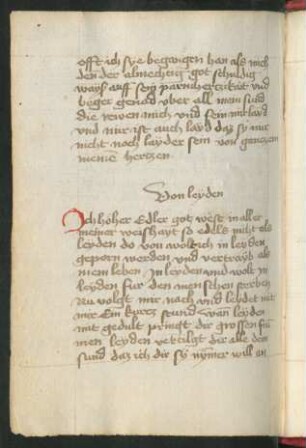 offt ich sye begangen han als mich
den der almechtig got schuldig
ways auff sein parmherczikait vnd
beger genad vber all mein sund
die rewen mich vnd sein mir layd
vnd mir ist auch layd daz sy mir
nicht noch layder sein von ganczem
meine herczen
Von leyden
Ich hoher Edler got weste in aller
meiner weishayt so edels nicht als
leyden do von wolt ich in leyden
geporn werden vnd vertrayb als
mein leben in leyden vnd wolt in
leyden fur den menschen sterben
Nu volgt mir nach vnd leydet mit
mir Ein kurcz stund wan leyden
mit gedult pringt dir grossen
men leyden vertiligt dir alle dein
sund daz ich dir sy nymer will an